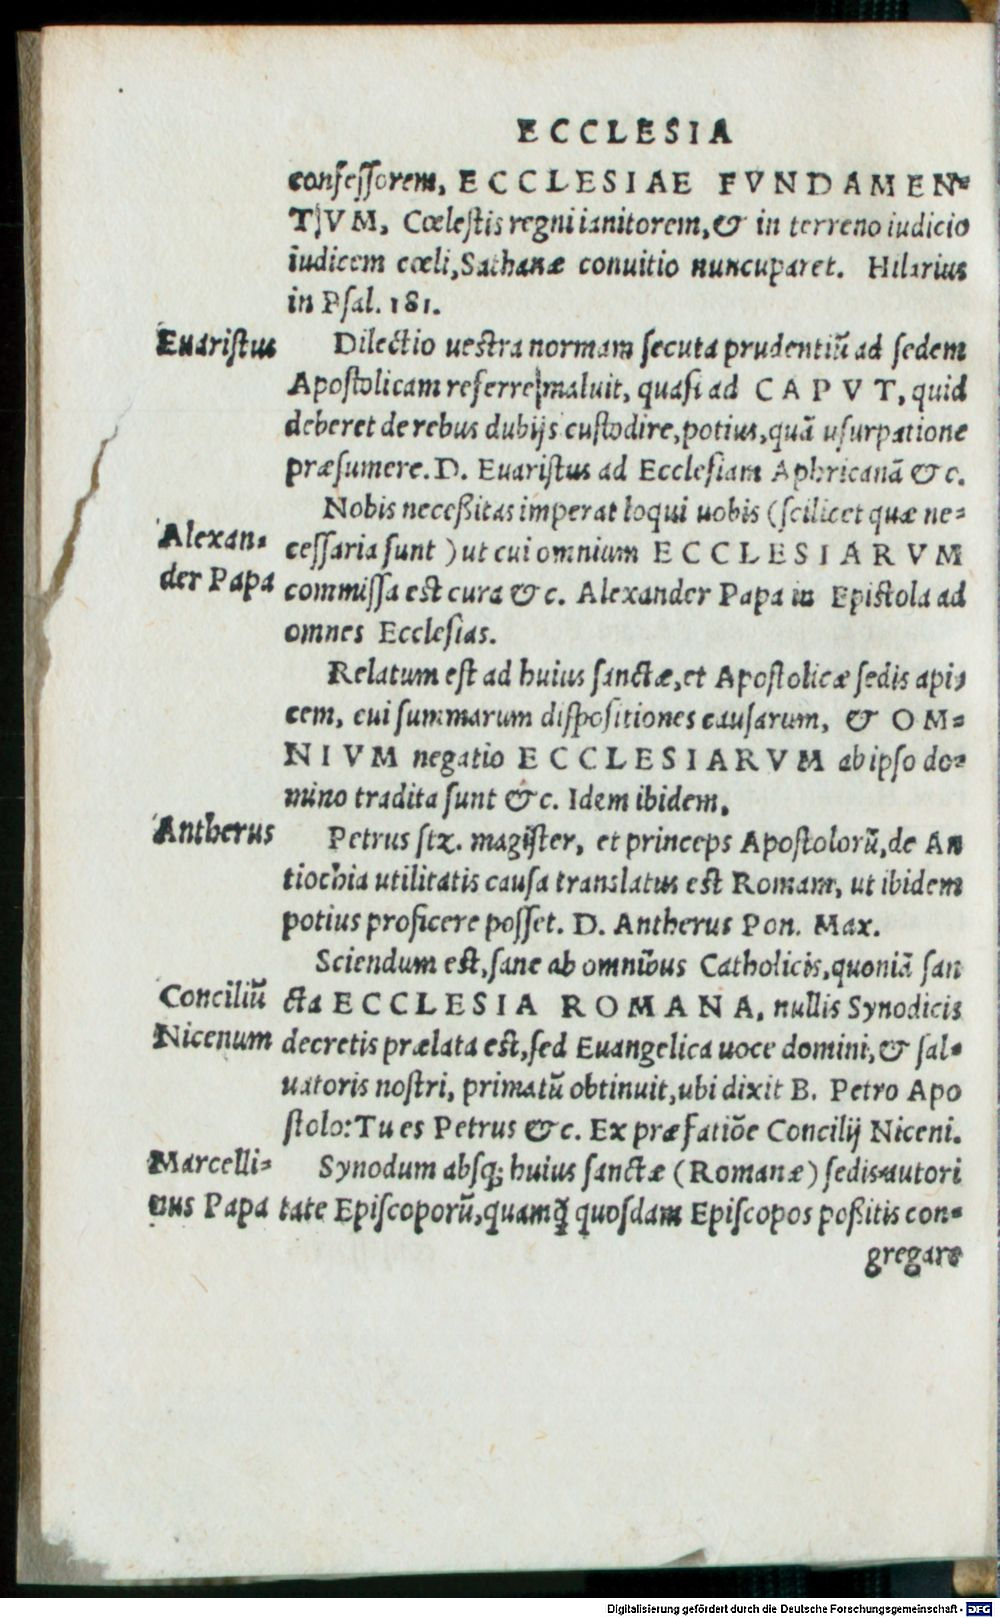 ECCLESIA
confessorem, ECCLESIAE FVNDAMEN=
TVM, Cœlestis regni ianitorem, & in terreno iudicio
iudicem cœli, Sathanæ conuitio nuncuparet. Hilarius
in Psal. 181.
Euaristus
Dilectio uestra normam secuta prudentiũ ad sedem
Apostolicam referre maluit, quasi ad CAPVT, quid
deberet de rebus dubijs custodire, potius, quã usurpatione
præsumere. D. Euaristus ad Ecclesiam Aphricanã &c.
Alexan=
der Papa
Nobis necessitas imperat loqui uobis (scilicet quæ ne=
cessaria sunt) ut cui omnium ECCLESIARVM
commissa est cura &c. Alexander Papa in Epistola ad
omnes Ecclesias.
Relatum est ad huius sanctæ, et Apostolicæ sedis api=
cem, cui summarum dispositiones causarum, & OM=
NIVM negatio ECCLESIARVM ab ipso do=
mino tradita sunt &c. Idem ibidem.
Antherus
Petrus sꝫ. magister, et princeps Apostolorũ, de An
tiochia utilitatis causa translatus est Romam, ut ibidem
potius proficere posset. D. Antherus Pon. Max.
Conciliũ
Nicenum
Sciendum est, sane ab omnibus Catholicis, quoniã san
cta ECCLESIA ROMANA, nullis Synodicis
decretis prælata est, sed Euangelica uoce domini, & sal=
uatoris nostri, primatũ obtinuit, ubi dixit B. Petro Apo
stolo: Tu es Petrus &c. Ex præfatiõe Concilij Niceni.
Marcelli=
nus Papa
Synodum absq; huius sanctæ (Romanæ) sedis autori
tate Episcoporũ, quamꝗ̃ quosdam Episcopos possitis con=
gregare
Digitalisierung gefördert durch die Deutsche Forschungsgemeinschaft - DFG